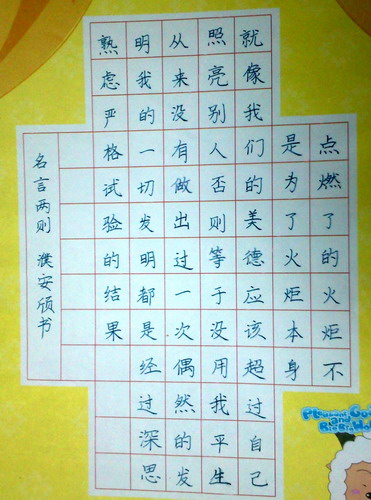 点燃了的火炬不
是为了火炬本身
就像我们的美德应该超过自己
照亮别人否则等于没用我平生
从来没有做出过一次偶然的发
明我的一切发明都是经过深思
熟虑严格试验的结果
名言两则 濮安颀书
Pleasant Goa
and
Big Big Wol